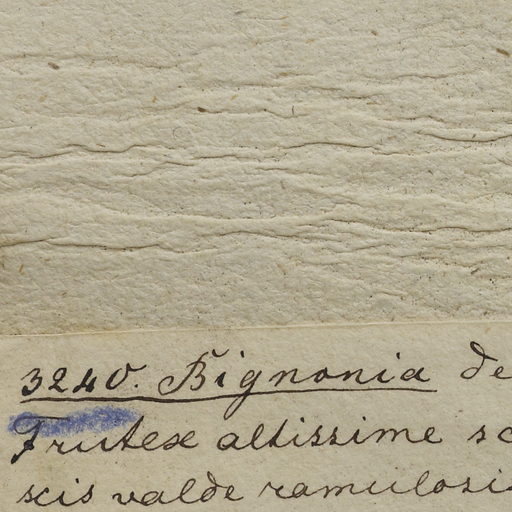 3240. Bignonia de
Frutex altissime sc
xis valde ramulosis